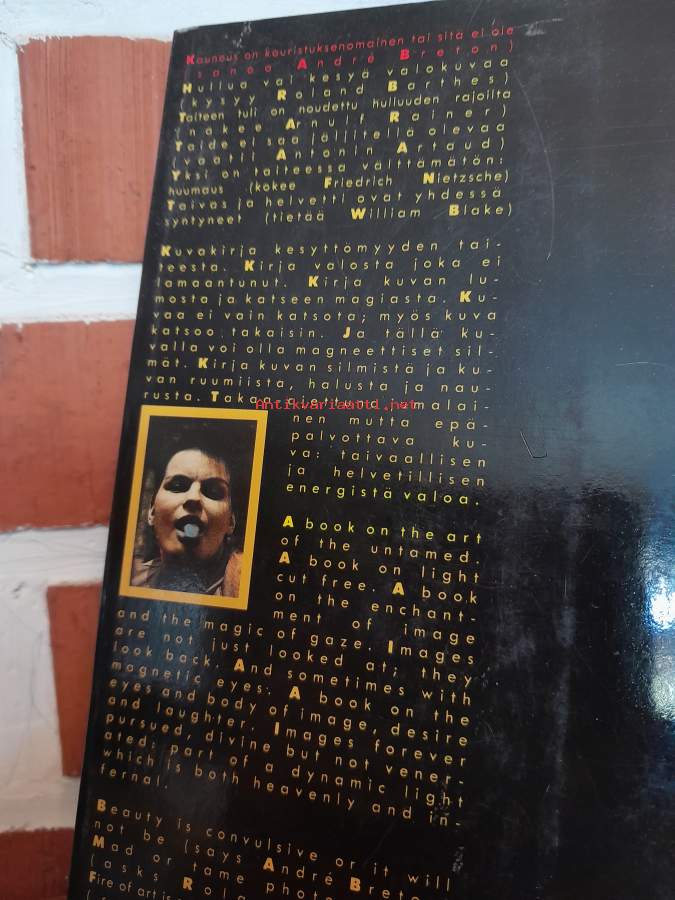 Kauneus on kouristuksenomainen tai sitä ei ole
(sanoo André Breton)
Hullua vai kesyä valokuvaa
(kysyy Roland Barthes)
Taiteen tuli on noudettu hulluuden rajoilta
(näkee Arnulf Rainer)
Taide ei saa jäljitellä olevaa
(vaatii Antonin Artaud)
Yksi on taiteessa välttämätön:
huumaus (kokee Friedrich Nietzsche)
Taivas ja helvetti ovat yhdessä
syntyneet (tietää William Blake)
Kuvakirja kesyttömyyden tai-
teesta. Kirja valosta joka ei
lamaantunut. Kirja kuvan lu-
mosta ja katseen magiasta. Ku-
vaa ei vain katsota; myös kuva
katsoo takaisin. Ja tällä ku-
valla voi olla magneettiset sil-
mät. Kirja kuvan silmistä ja ku-
van ruumiista, halusta ja nau-
rusta. Takaa-ajettu, jumalai-
Antikvariaatti.net
nen mutta epä-
palvottava ku-
va: taivaallisen
ja helvetillisen
energistä valoa.
A book on the art
of the untamed.
A book on light
cut free. A book
on the enchant-
ment of image
and the magic of gaze. Images
are not just looked at; they
look back. And sometimes with
magnetic eyes. A book on the
eyes and body of image, desire
and laughter. Images forever
pursued, divine but not vener-
ated; part of a dynamic light
which is both heavenly and in-
fernal.
Beauty is convulsive or it will
not be (says André Breto
Mad or tame phot
(asks Rola
Fire of art is